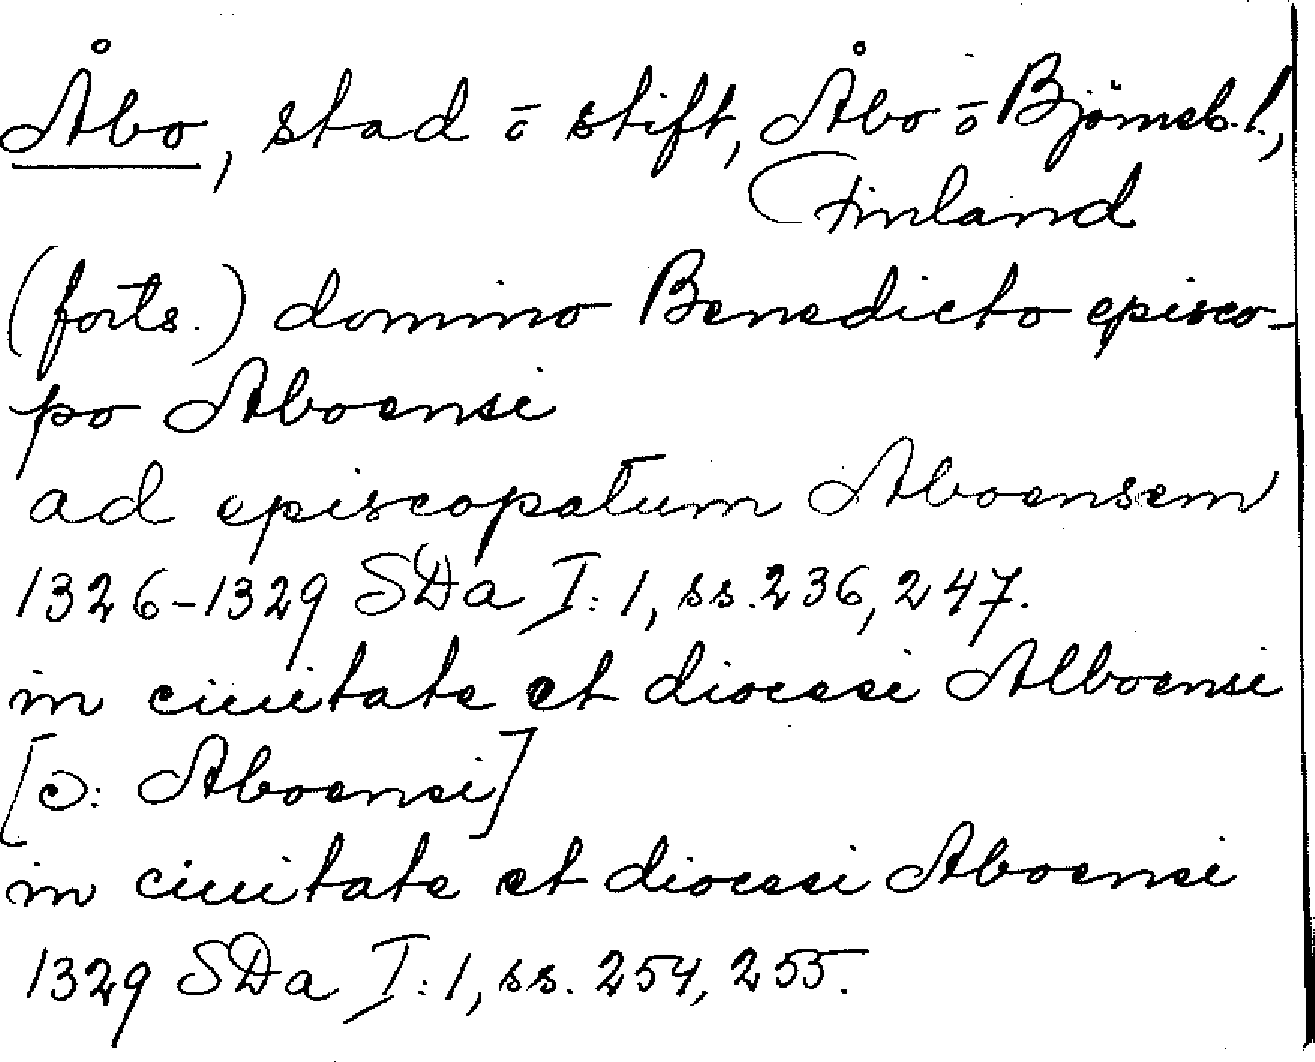 Åbo, stad ō stift, Åbo ō Björneb. l.,
Finland
(forts.) domino Benedicto episco-
po Aboensi
ad episcopatum Aboensem
1326-1329 SDa I:1, ss. 236, 247.
in ciuitate et diocesi Alboensi
[ɔ: Aboensi]
in ciuitate et diocesi Aboensi
1329 SDa I:1, ss. 254, 255.